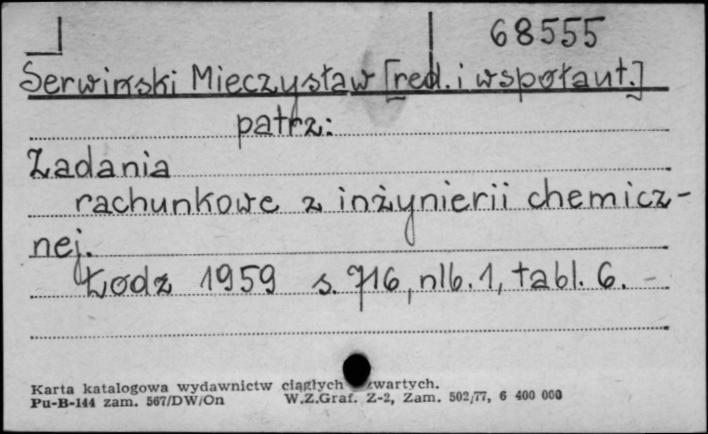 68555
Serwiński Mieczysław [red. i współaut.]
patrz:
Zadania
rachunkowe z inżynierii chemicz-
nej.
Łódz 1959 s. 716, nlb. 1, tabl. 6. -
Karta katalogowa wydawnictw ciągłych zwartych.
Pu-B-144 zam. 567/DW/On W.Z.Graf. Z-2, Zam. 502/77, 6 400 000